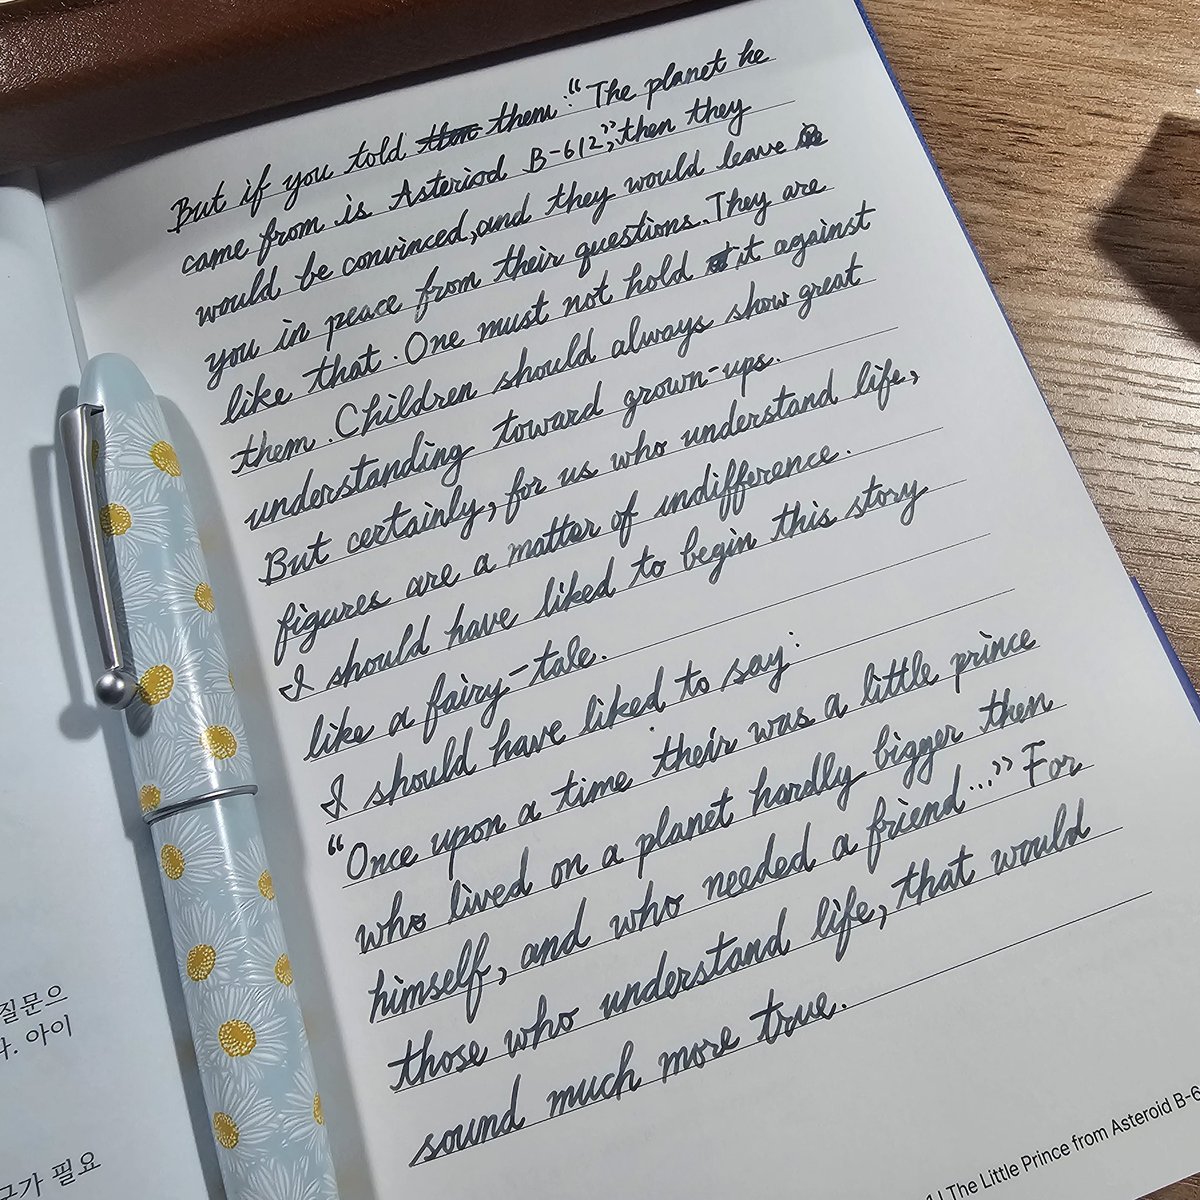 But if you told then them: “The planet he
came from is Asteriod B-612”, then they
would be convinced, and they would leave
you in peace from their questions. They are
like that. One must not hold it against
them. Children should always show great
understanding toward grown-ups.
But certainly, for us who understand life,
figures are a matter of indifference.
I should have liked to begin this story
like a fairy-tale.
I should have liked to say:
“Once upon a time their was a little prince
who lived on a planet hardly bigger then
himself, and who needed a friend...” For
those who understand life, that would
sound much more true.
질문으
. 아이
가 필요
1 | The Little Prince from Asteroid B-6